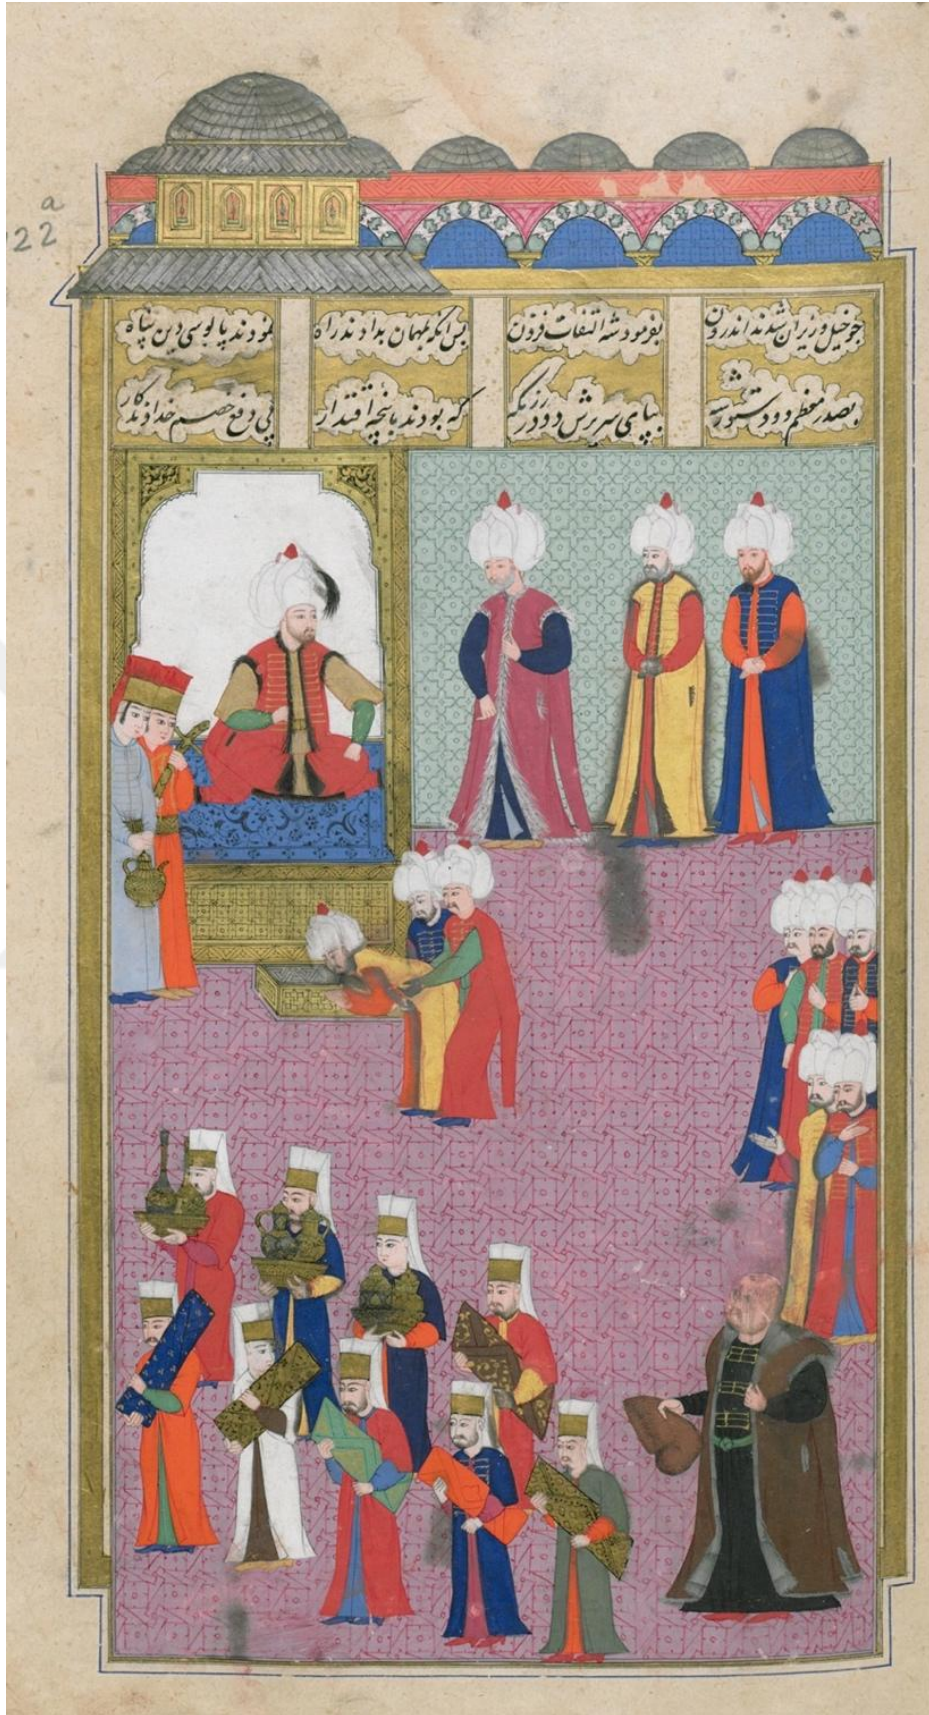 چو خیل وزیران شدند اندرون
بفرمود شه التفات فزون
پس آنکه بمهمان بدادند راه
نمودند پابوسی دین پناه
بصدر معظم دو دستور شه
بپای سریرش دو در
که بودند با پنجهٔ اقتدار
پی دفع خصم خداوندکار
a
22